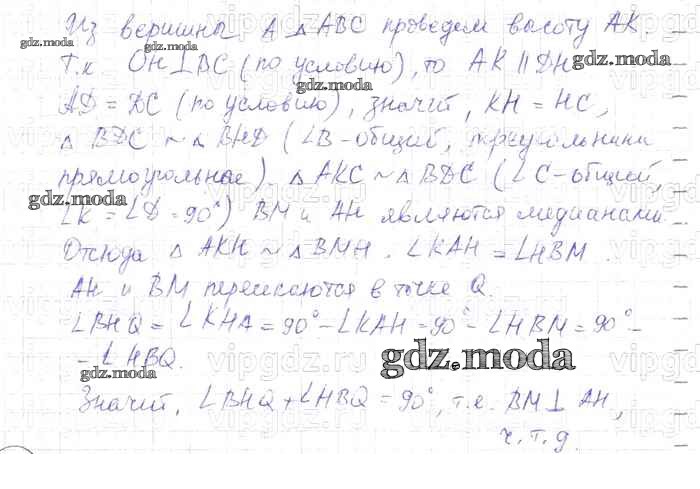 Из вершины A △ABC проведем высоту AK.
Т.к DH⊥BC (по условию), то AK ∥ DH
AD = DC (по условию), значит, KH = HC,
△ BDC ~ △ BHD (∠B-общий, треугольники
прямоугольные), △ AKC ~ △ BDC (∠C-общий,
∠K = ∠D = 90°) BM и AH являются медианами.
Отсюда △ AKH ~ △BMH. ∠KAH = ∠HBM.
AH и BM пересекаются в точке Q.
∠BHQ = ∠KHA = 90° - ∠KAH = 90° - ∠HBM = 90° -
- ∠HBQ.
Значит, ∠BHQ + ∠HBQ = 90°, т.е. BM ⊥ AH,
ч.т.д.
gdz.moda
gdz.moda
gdz.moda
gdz.moda
gdz.moda
gdz.moda